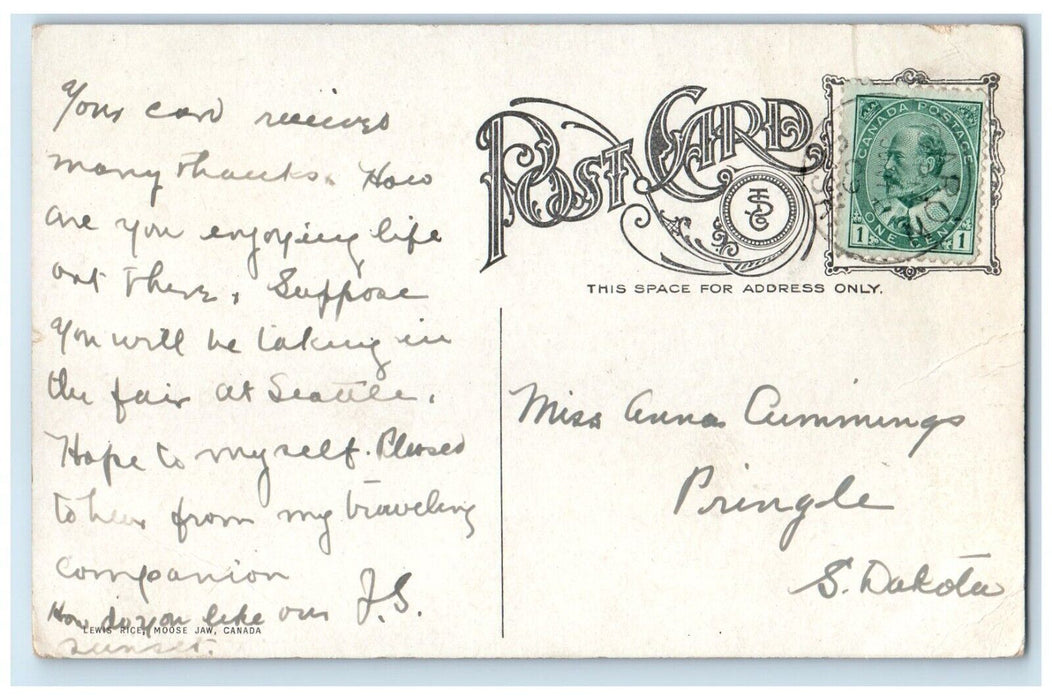 Your card received
many thanks. How
are you enjoying life
out there, Suppose
you will be taking in
the fair at Seattle.
Hope to myself. Pleased
to hear from my traveling
companion
J.S.
How do you like our
sunset.
LEWIS RICE, MOOSE JAW, CANADA
POST CARD
THIS SPACE FOR ADDRESS ONLY.
CANADA POSTAGE
1 ONE CENT 1
Miss Anna Cummings
Pringle
S. Dakota